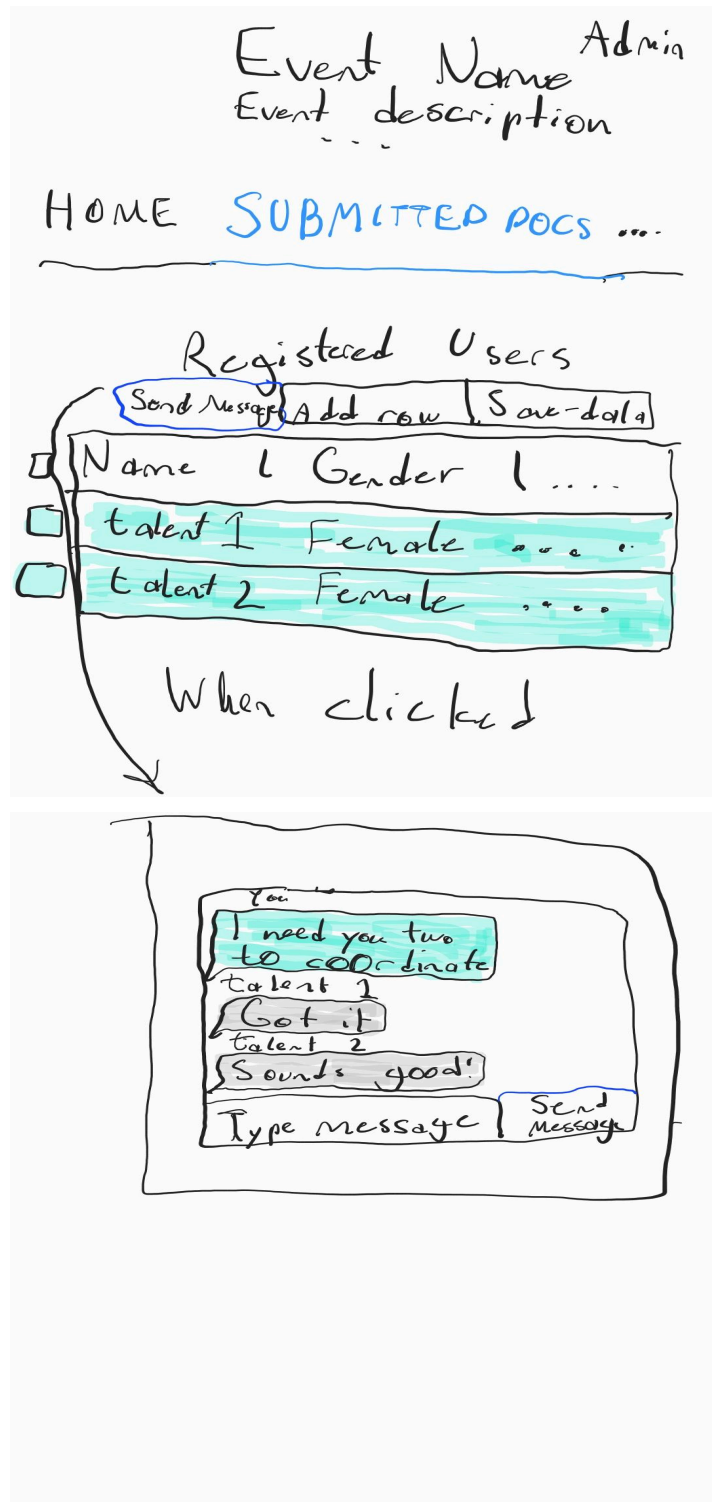 Admin
Event Name
Event description
...
HOME SUBMITTED DOCS ....
Registered Users
Send Message Add row Save-data
Name | Gender | ....
talent 1 Female ....
talent 2 Female ....
When clicked
You
I need you two
to coordinate
talent 1
Got it
talent 2
Sounds good!
Type message
Send
Message